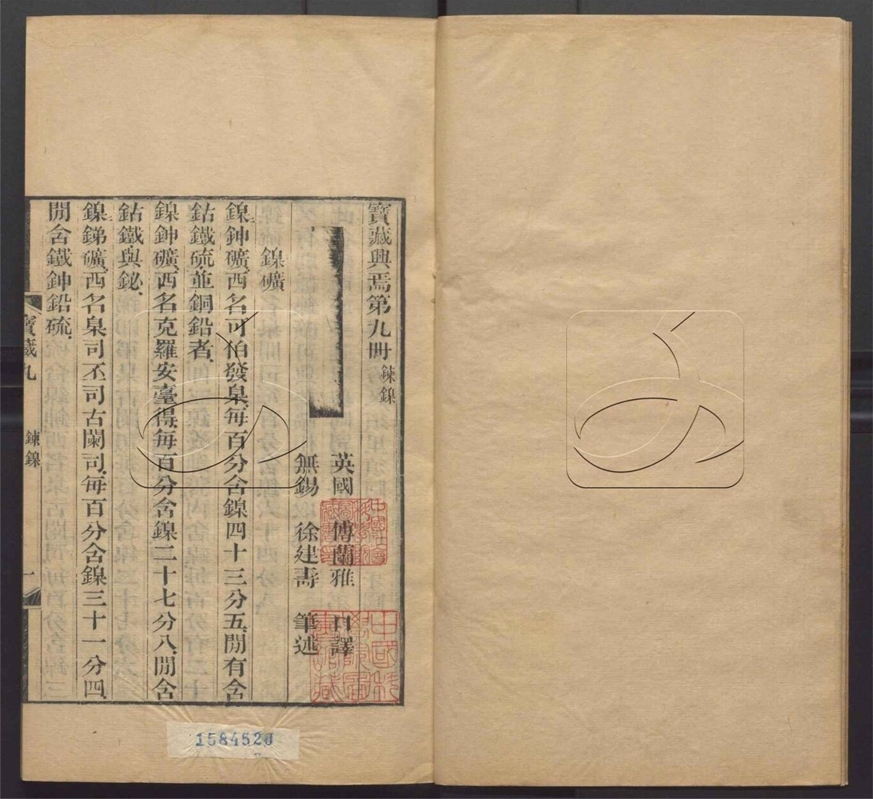 寶藏興焉第九冊 鍊鎳
英國 傅蘭雅 口譯
無錫 徐建寅 筆述
鎳礦
鎳鉮礦西名可怕發臬每百分含鎳四十三分五間有含
鈷鐵硫並銅鉛者
鎳鉮礦西名克羅安毫得每百分含鎳二十七分八間含
鈷鐵與鉍
鎳銻礦西名臬司丕司古闌司每百分含鎳三十一分四
間含鐵鉮鉛硫
寶藏九
鍊鎳
一
1584520